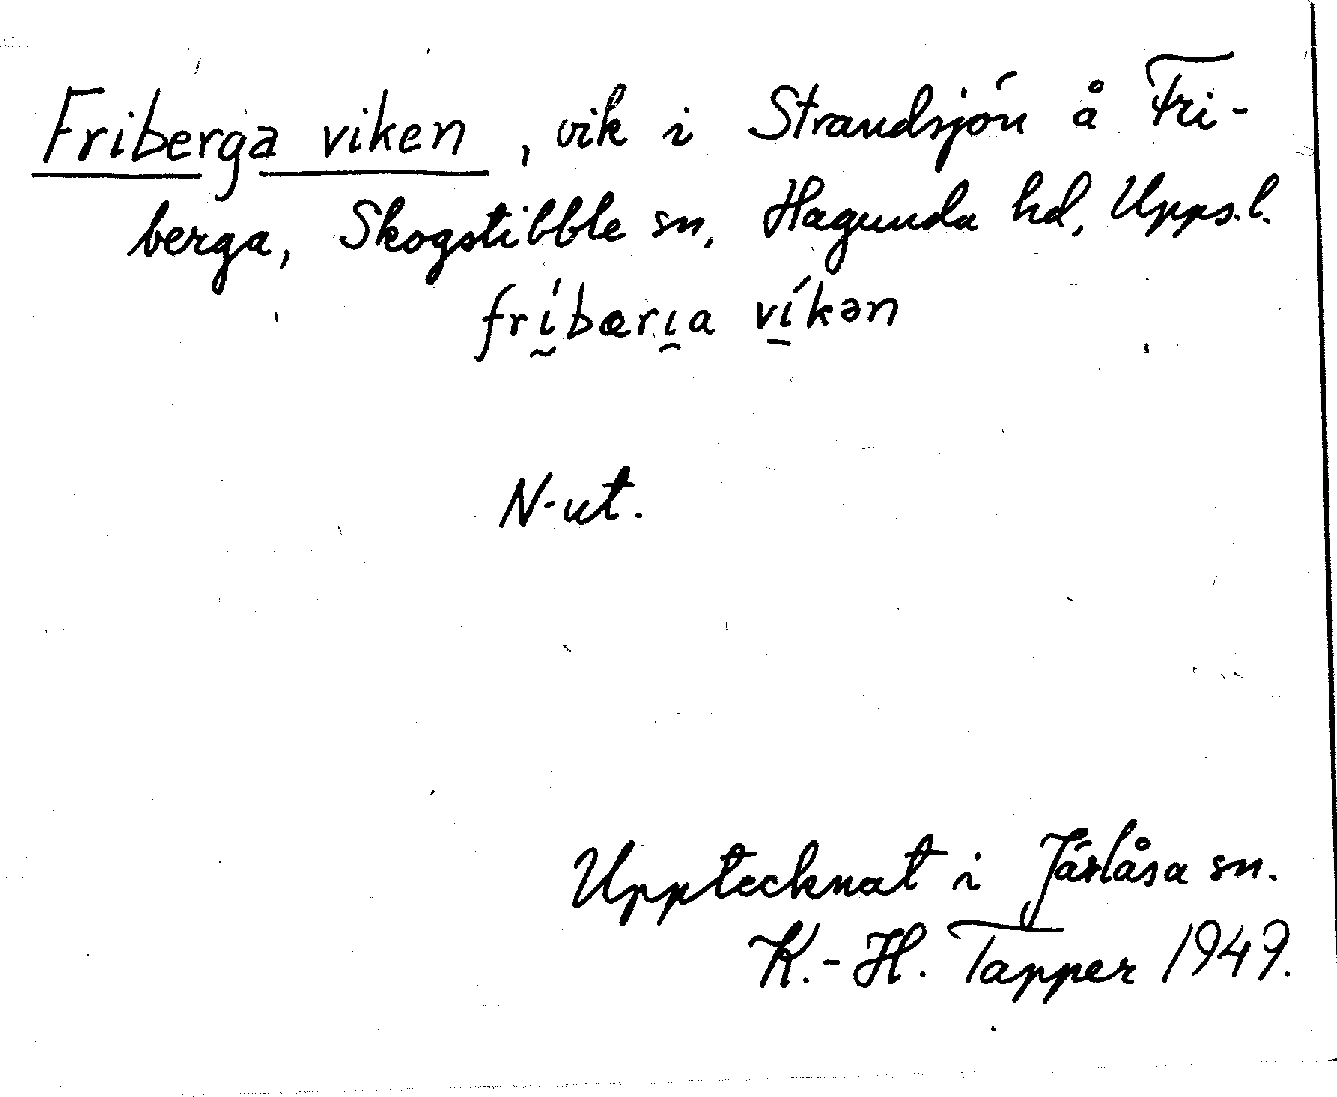 Friberga viken, vik i Strandsjön å Fri-
berga, Skogstibble sn, Hagunda hd, Upps.l.
frḭ́bærı̯a ví̱kən
N-ut.
Upptecknat i Järlåsa sn.
K.-H. Tapper 1949.